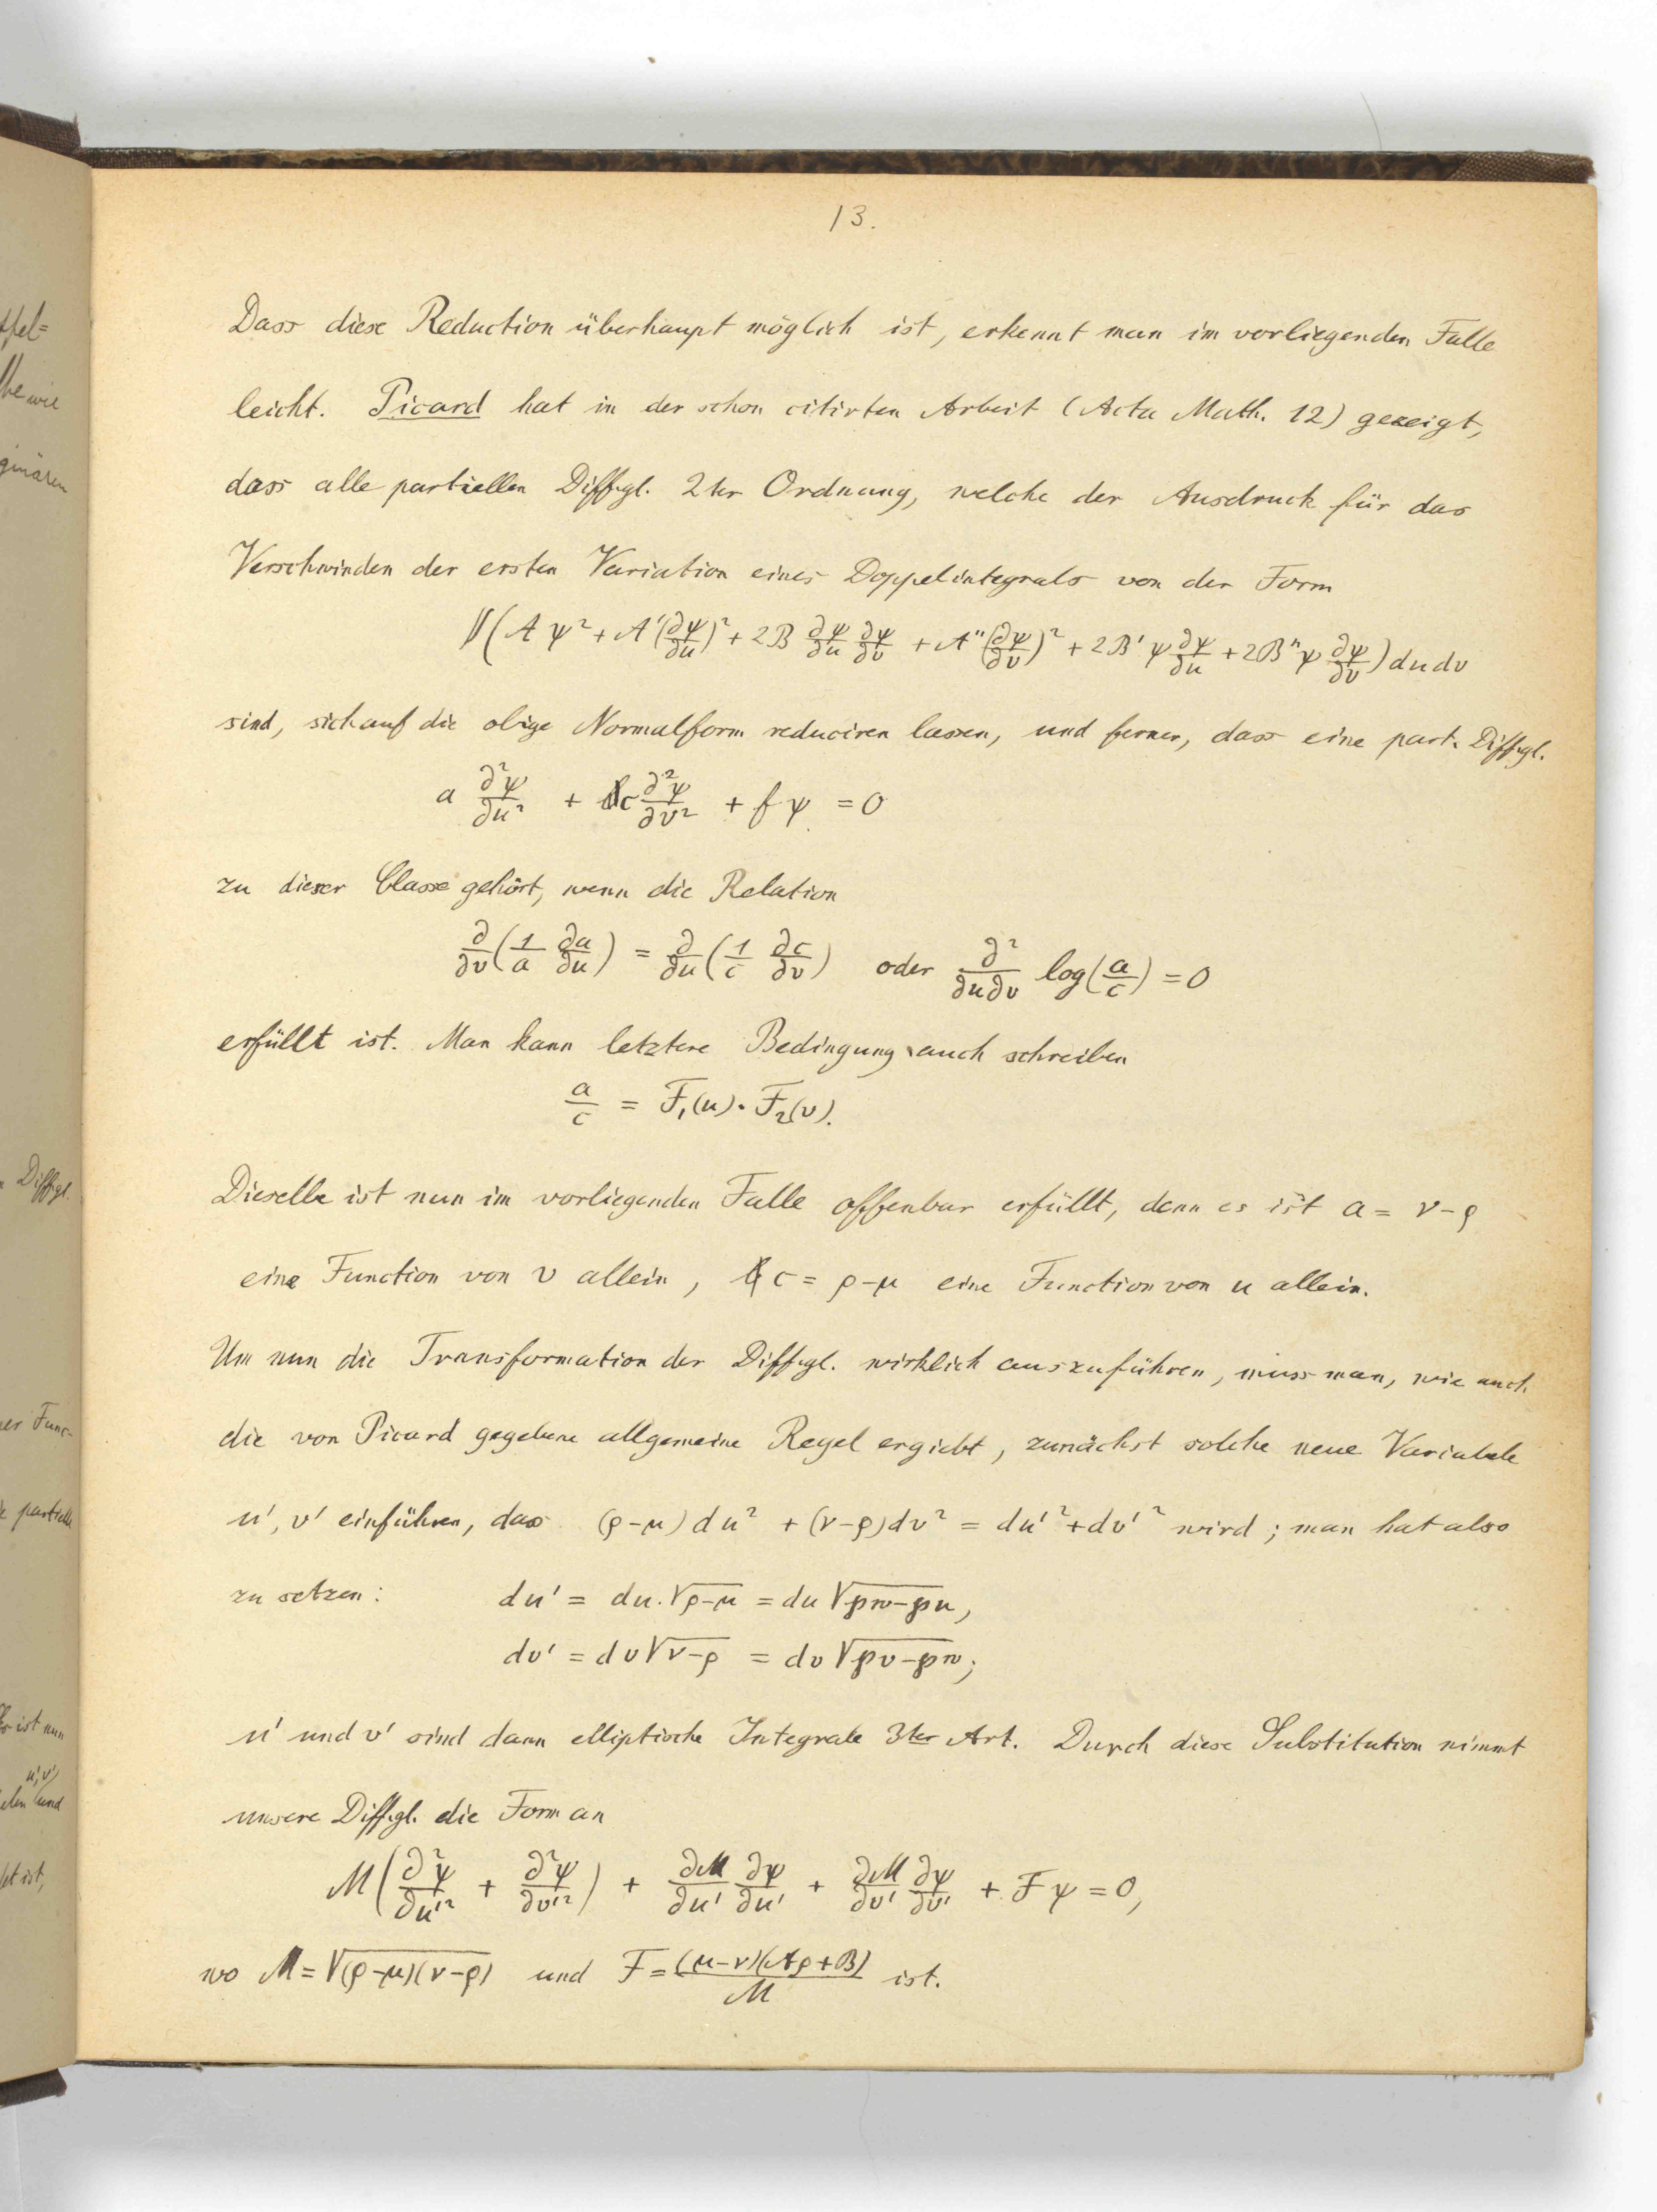 13.
Dass diese Reduction überhaupt möglich ist, erkennt man im vorliegenden Falle
leicht. Picard hat in der schon citirten Arbeit (Acta Math. 12) gezeigt,
dass alle partiellen Diffgl. 2ter Ordnung, welche der Ausdruck für das
Verschwinden der ersten Variation eines Doppelintegrals von der Form
∬(A ψ² + A′(∂ψ/∂u)² + 2B ∂ψ/∂u ∂ψ/∂v + A″(∂ψ/∂v)² + 2B′ ψ ∂ψ/∂u + 2B″ψ ∂ψ/∂v) du dv
sind, sich auf die obige Normalform reduciren lassen, und ferner, dass eine part. Diffgl.
a ∂²ψ/∂u² + c ∂²ψ/∂v² + f ψ = 0
zu dieser Classe gehört, wenn die Relation
∂/∂v (1/a ∂a/∂u) = ∂/∂u (1/c ∂c/∂v) oder ∂²/∂u∂v log(a/c) = 0
erfüllt ist. Man kann letztere Bedingung auch schreiben
a/c = F₁(u)·F₂(v).
Dieselbe ist nun im vorliegenden Falle offenbar erfüllt, denn es ist a = ν-ρ
eine Function von v allein, c = ρ-μ eine Function von u allein.
Um nun die Transformation der Diffgl. wirklich auszuführen, muss man, wie auch
die von Picard gegebene allgemeine Regel ergiebt, zunächst solche neue Variabele
u′, v′ einführen, das (ρ-μ) du² + (ν-ρ)dv² = du′² + dv′² wird; man hat also
zu setzen: du′ = du.√(ρ-μ) = du √(℘w-℘u),
dv′ = dv√(ν-ρ) = dv √(℘v-℘w);
u′ und v′ sind dann elliptische Integrale 3ter Art. Durch diese Substitution nimmt
unsere Diffgl. die Form an
M(∂²ψ/∂u′² + ∂²ψ/∂v′²) + ∂M/∂u′ ∂ψ/∂u′ + ∂M/∂v′ ∂ψ/∂v′ + F ψ = 0,
wo M = √((ρ-μ)(ν-ρ)) und F = (μ-ν)(Aρ+B)/M ist.